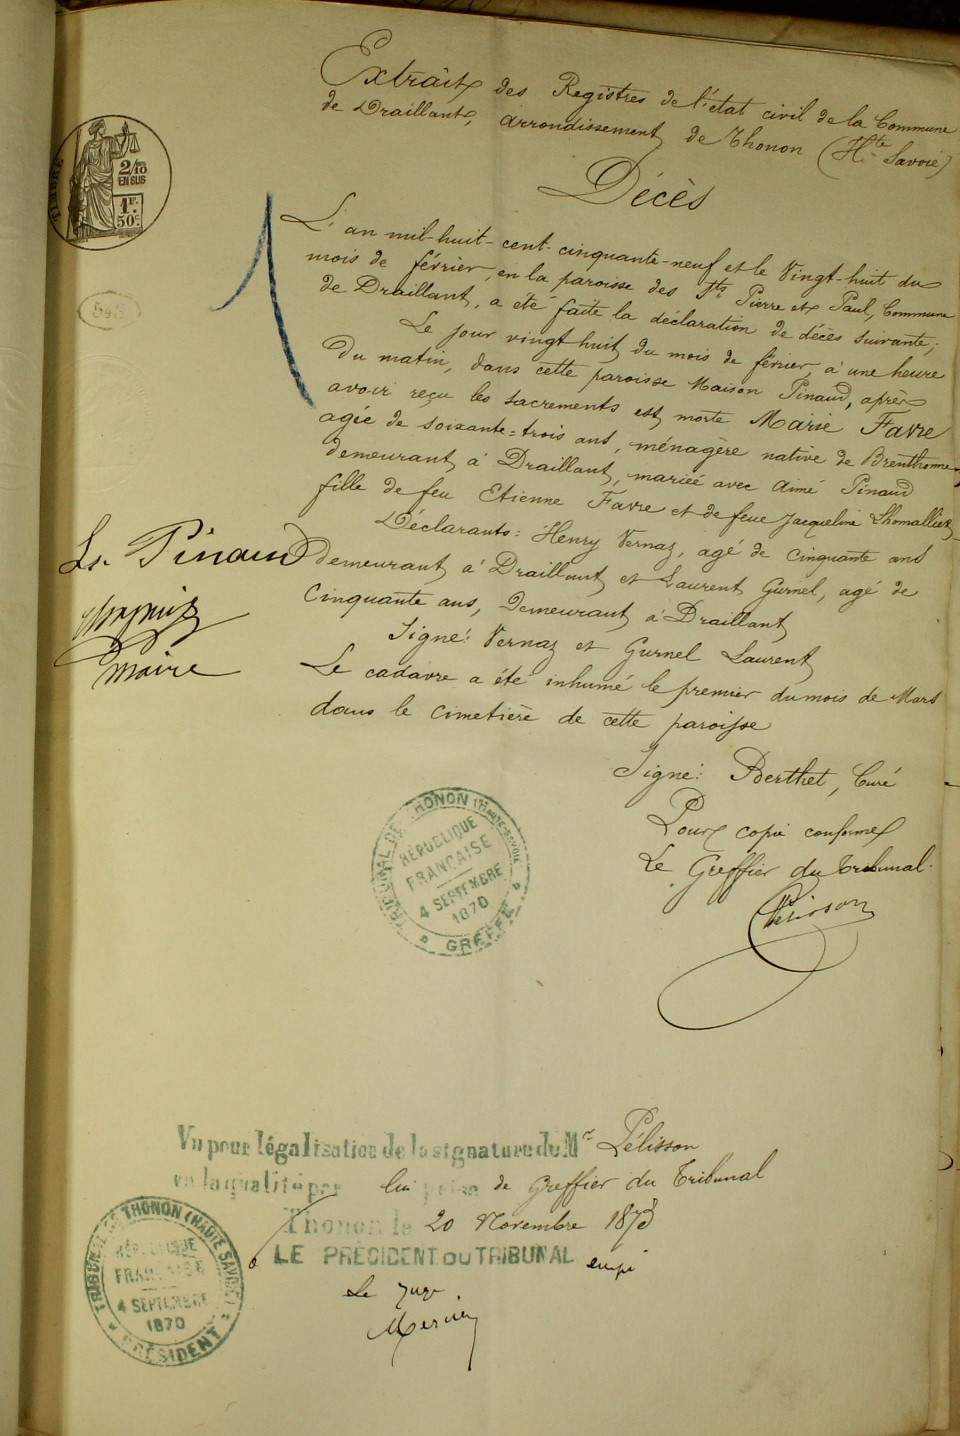 Extrait des Registres de l'état civil de la Commune
de Draillant, arrondissement de Thonon (Hte Savoie)
Décès
TIMBRE
2/10
EN SUS
1F.
50c.
L'an mil-huit-cent-cinquante-neuf et le Vingt-huit du
mois de février, en la paroisse des Sts Pierre et Paul, Commune
de Draillant, a été faite la déclaration de décès suivante;
Le jour vingt huit du mois de février, à une heure
du matin, dans cette paroisse Maison Pinaud, après
avoir reçu les sacrements est morte Marie Favre
agée de soixante=trois ans, ménagère native de Brenthonne
demeurant à Draillant, mariée avec Aimé Pinaud
fille de feu Etienne Favre et de feue Jacqueline
Déclarants: Henry Vernaz, agé de cinquante ans
demeurant à Draillant et Laurent Gurnel, agé de
Cinquante ans, demeurant à Draillant
Signé: Vernaz et Gurnel Laurent
Le cadavre a été inhumé le premier du mois de Mars
dans le cimetière de cette paroisse
Signé: Berthet, Curé
Pour copie conforme
Le Greffier du Tribunal.
Pélisson
Ls. Pinaud
maire
TRIBUNAL DE THONON (HAUTE-SAVOIE)
RÉPUBLIQUE
FRANÇAISE
4 SEPTEMBRE
1870
GREFFE
Vu pour légalisation de la signature de Mr Pélisson
en la qualité par lui prise de Greffier du Tribunal
Thonon le 20 Novembre 1873
LE PRÉSIDENT DU TRIBUNAL empé
Le Juge
TRIBUNAL DE THONON (HAUTE SAVOIE)
RÉPUBLIQUE
FRANÇAISE
4 SEPTEMBRE
1870
PRÉSIDENT